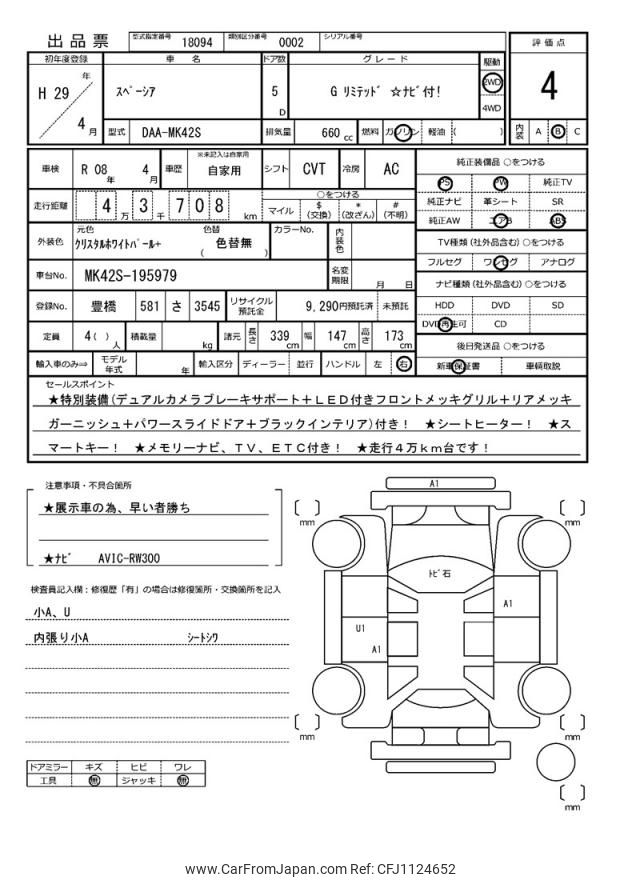 出品票 型式指定番号 18094 類別区分番号 0002 シリアル番号
初年度登録 車名 ドア数 グレード 駆動 評価点
H 29 年 4 月 スペーシア 5 D G リミテッド ☆ナビ付! 2WD 4WD 4
型式 DAA-MK42S 排気量 660 cc 燃料 ガソリン 軽油 ( ) 内装 A B C
車検 R 08 年 4 月 車歴 ※未記入は自家用 自家用 シフト CVT 冷房 AC 純正装備品 ○をつける
PS PW 純正TV
走行距離 4 3 7 0 8 万 千 km ○をつける
マイル $(交換) *(改ざん) #(不明)
純正ナビ 革シート SR
純正AW エアB ABS
外装色 元色 クリスタルホワイトパール+ 色替 色替無 ( ) カラーNo. 内装色
TV種類(社外品含む) ○をつける
フルセグ ワンセグ アナログ
車台No. MK42S-195979 名変期限 月 日
ナビ種類(社外品含む) ○をつける
登録No. 豊橋 581 さ 3545 リサイクル預託金 9,290円預託済 未預託
HDD DVD SD
DVD再生可 CD
定員 4( ) 人 積載量 kg 諸元 長さ 339 cm 幅 147 cm 高さ 173 cm
後日発送品 ○をつける
輸入車のみ⇒ モデル年式 年 輸入区分 ディーラー 並行 ハンドル 左 右
新車保証書 車輌取説
セールスポイント
★特別装備(デュアルカメラブレーキサポート+LED付きフロントメッキグリル+リアメッキ
ガーニッシュ+パワースライドドア+ブラックインテリア)付き! ★シートヒーター! ★ス
マートキー! ★メモリーナビ、TV、ETC付き! ★走行4万km台です!
注意事項・不具合箇所
★展示車の為、早い者勝ち
★ナビ AVIC-RW300
検査員記入欄:修復歴「有」の場合は修復箇所・交換箇所を記入
小A、U
内張り小A シートシワ
ドアミラー キズ ヒビ ワレ
工具 無 ジャッキ 無
A1
mm
mm
トビ石
A1
U1
A1
mm
mm
mm
www.CarFromJapan.com Ref: CFJ1124652